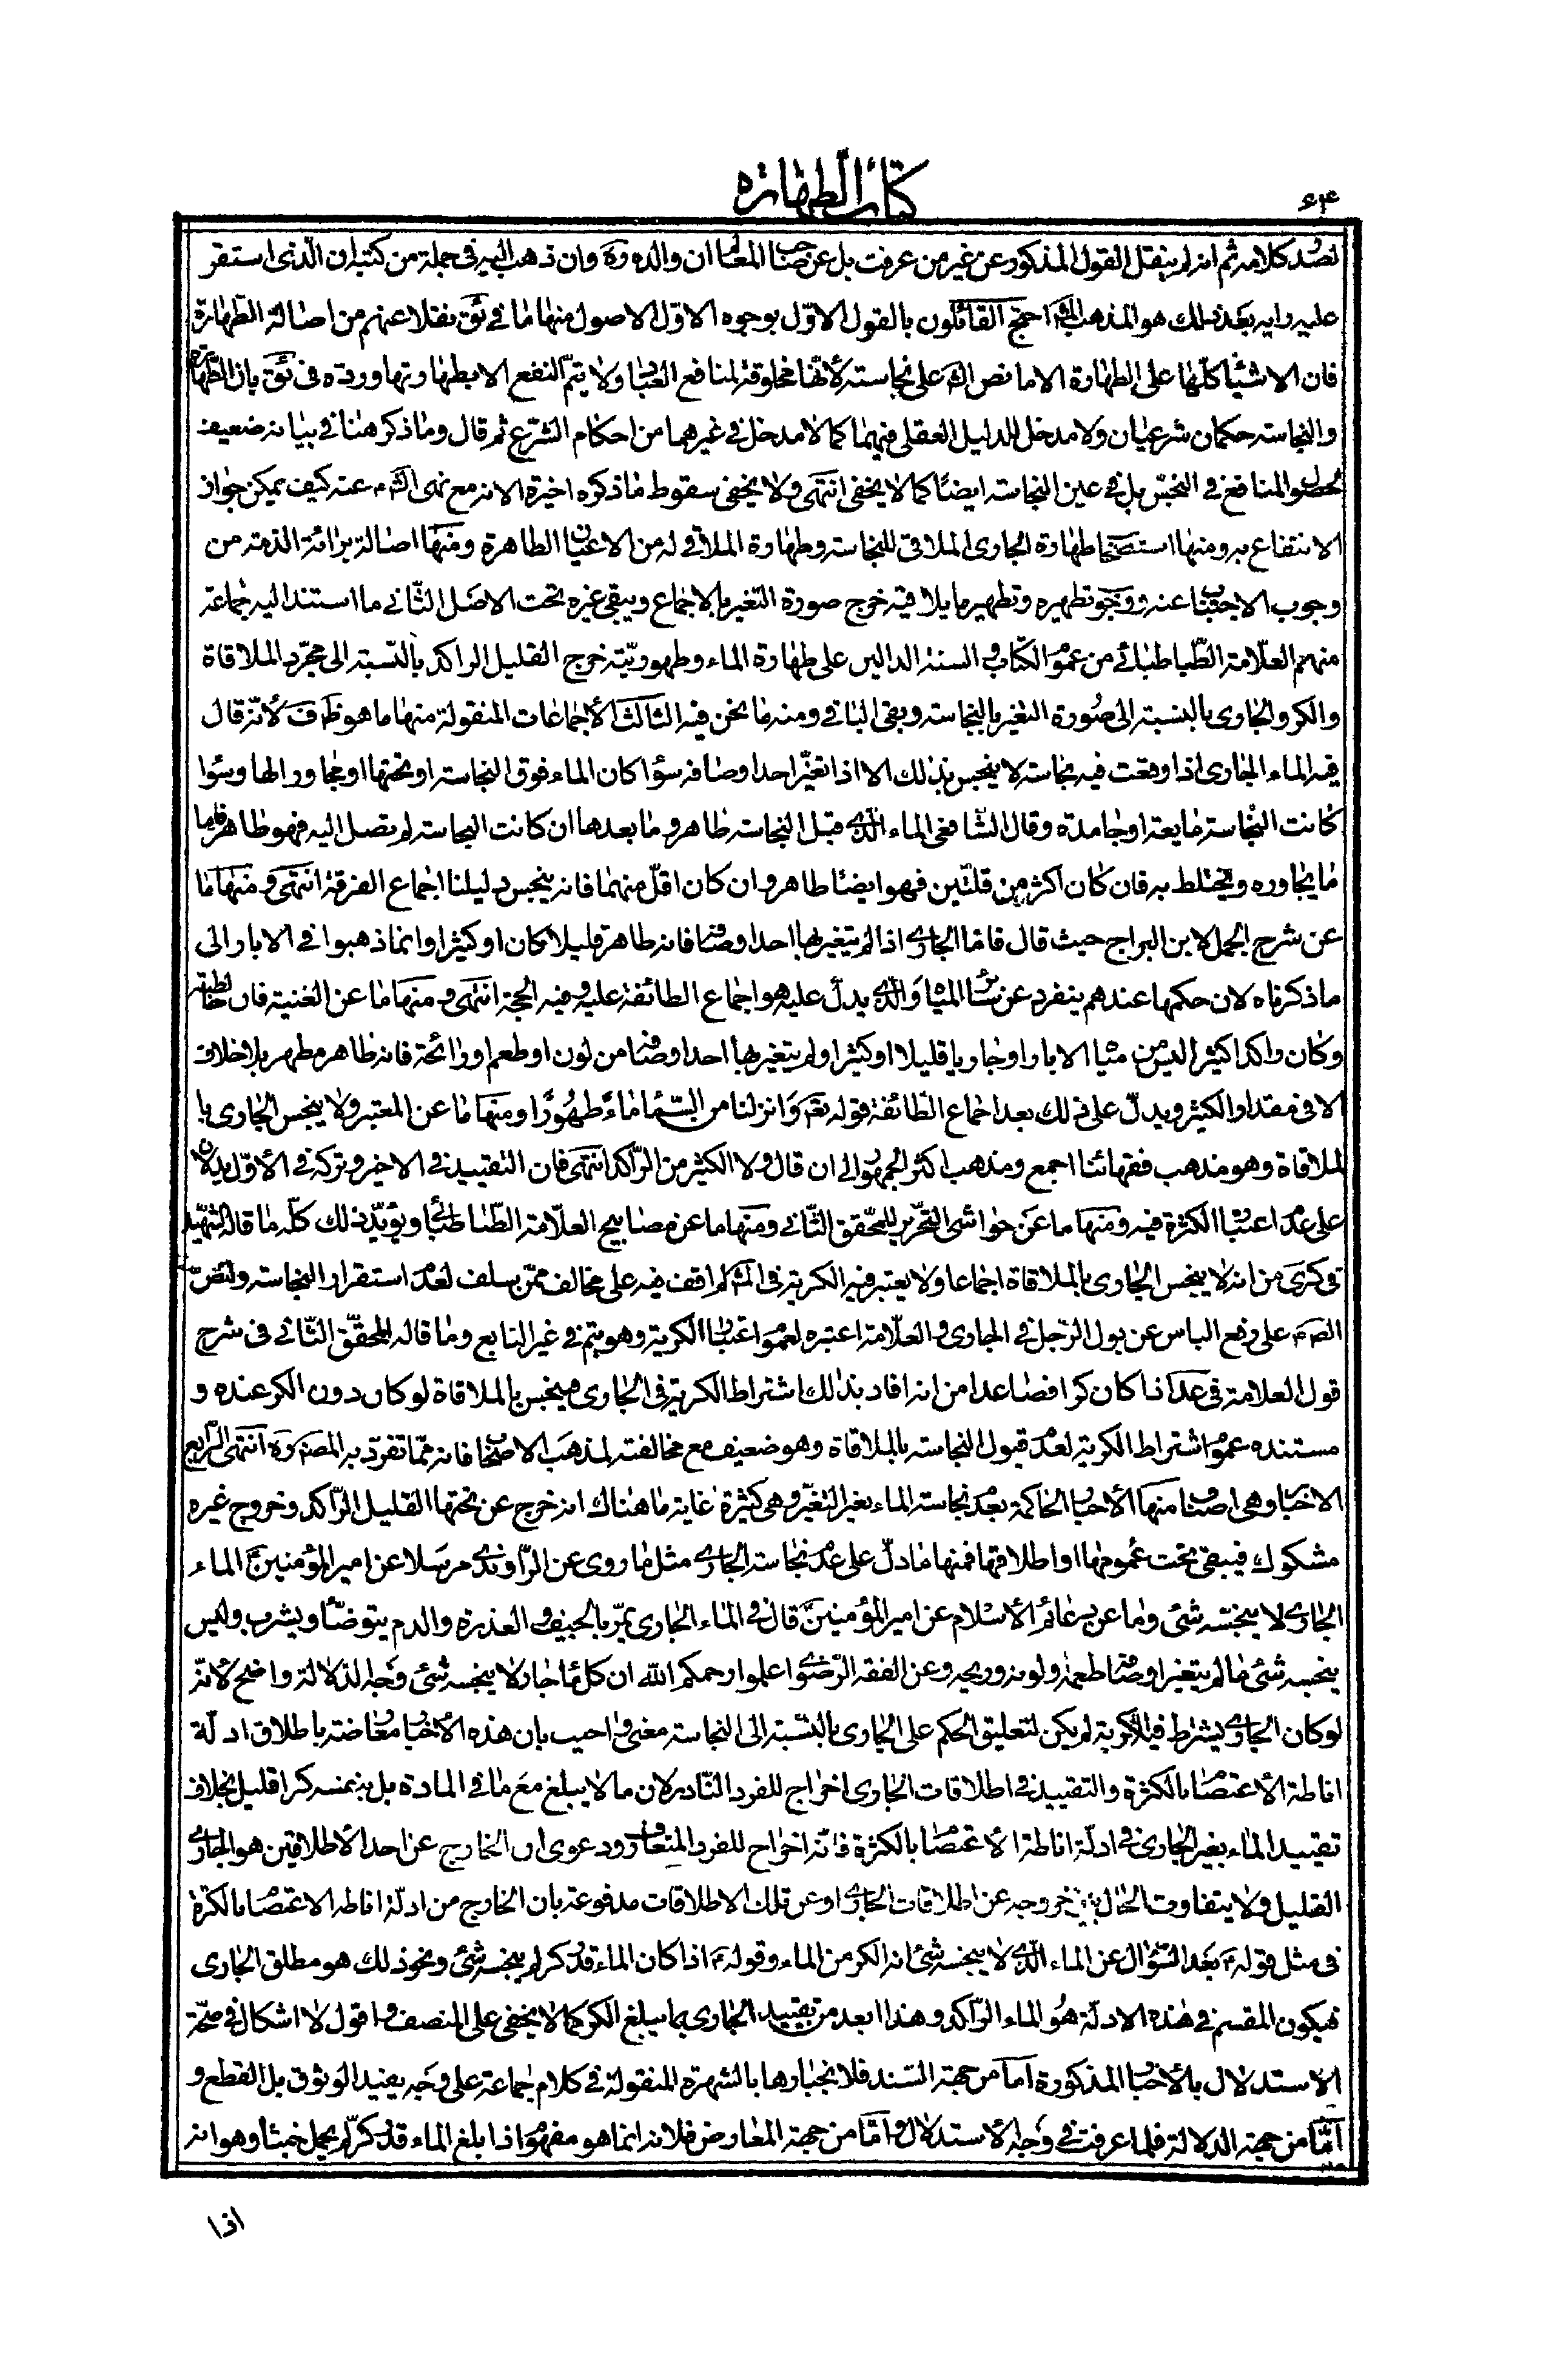 كتاب الطهارة
٤٣
لصدر كلامه ثم انه لم ينقل القول المذكور عن غير من عرفت بل عن صاحب المعالم ان والده ره وان ذهب اليه فى جملة من كتبه ان الّذى استقر
عليه رايه بعد ذلك هو المذهب احتج القائلون بالقول الاوّل بوجوه الاوّل الاصول منها ما فى ئق نقلا عنهم من اصالة الطهارة
فان الاشياء كلّها على الطهارة الا ما نص الش على نجاسته لأنّها مخلوقة لمنافع العباد ولا يتمّ النفع الا بطهارتها وردّه فى ئق بان الطّهارة
والنجاسة حكمان شرعيان ولا مدخل للدليل العقلى فيهما كما لا مدخل فى غيرهما من احكام الشرع ثم قال وما ذكر هنا فى بيانه ضعيف
لحصول المنافع فى النجس بل فى عين النجاسة ايضا كما لا يخفى انتهى ولا يخفى سقوط ما ذكره اخيرة لانه مع نهى الش عنه كيف يمكن جواز
الانتفاع به ومنها استصحاب طهارة الجارى الملاقى للنجاسة وطهارة الملاقى له من الاعيان الطاهرة ومنها اصالة برائة الذمة من
وجوب الاجتناب عنه ووجوب تطهيره وتطهير ما يلاقيه خرج صورة التغير بالاجماع ويبقى غيره تحت الاصل الثّانى ما استند اليه جماعة
منهم العلّامة الطّباطبائى من عموم الكتاب والسنة الدالين على طهارة الماء وطهوريّته خرج القليل الراكد بالنّسبة الى مجرّد الملاقاة
والكر والجارى بالنسبة الى صورة التغير بالنجاسة وبقى الباقى ومنه ما نحن فيه الثالث الأجماعات المنقولة منها ما هو ظ ف لأنّه قال
فيه الماء الجارى اذا وقعت فيه نجاسة لا ينجس بذلك الا اذا تغيّر احد اوصافه سواء كان الماء فوق النجاسة او تحتها او مجاورا لها وسواء
كانت النجاسة مايعة او جامدة وقال الشّافعى الماء الّذى قبل النجاسة طاهر وما بعدها ان كانت النجاسة لم تصل اليه فهو طاهر فاما
ما يجاوره ويختلط به فان كان اكثر من قلّتين فهو ايضا طاهر وان كان اقلّ منهما فانه ينجس دليلنا اجماع الفرقة انتهى ومنها ما
عن شرح الجمل لابن البراج حيث قال فامّا الجارى اذا لم يتغير بها احد اوصافه فانه طاهر قليلا كان او كثيرا وانما ذهبوا فى الابار الى
ما ذكرناه لان حكمها عندهم ينفرد عن سائر المياه والّذى يدلّ عليه هو اجماع الطائفة عليه وفيه الحجة انتهى ومنها ما عن الغنية فان خالطته
وكان راكدا كثيرا ليس من مياه الابار او جاريا قليلا او كثيرا ولم يتغير بها احد اوصافه من لون او طعم او رائحة فانه طاهر مطهر بلا خلاف
الا فى مقدار الكثير ويدلّ على ذلك بعد اجماع الطائفة قوله تع وَانزلنا من السّماء مَاءً طَهُورًا ومنها ما عن المعتبر ولا ينجس الجارى با
لملاقاة وهو مذهب فقهائنا اجمع ومذهب اكثر الجمهور الى ان قال ولا الكثير من الرّاكد انتهى فان التقييد فى الاخير وتركه فى الأوّل يدلان
على عدم اعتبار الكثرة فيه ومنها ما عن حواشى التحرير للمحقق الثّانى ومنها ما عن مصابيح العلّامة الطّباطبائى ويؤيّد ذلك كلّه ما قاله الشهيد
فى كرى من انه لا ينجس الجارى بالملاقاة اجماعا ولا يعتبر فيه الكرية فى المش لم اقف فيه على مخالف ممّن سلف لعدم استقرار النجاسة ولنصّ
الص م على رفع الباس عن بول الرّجل فى الجارى والعلّامة اعتبره لعموم اعتبار الكرية وهو يتم فى غير النابع وما قاله المحقّق الثّانى فى شرح
قول العلامة فى عد اذا كان كرا فصاعدا من انه افاد بذلك اشتراط الكرية فى الجارى فينجس بالملاقاة لو كان دون الكر عنده و
مستنده عموم اشتراط الكرية لعدم قبول النجاسة بالملاقاة وهو ضعيف مع مخالفته لمذهب الاصحاب فانه ممّا تفرّد به المصنف ره انتهى الرّابع
الاخبار وهى اصناف منها الأخبار الحاكمة بعدم نجاسة الماء بغير التغيّر وهى كثيرة غاية ما هناك انه خرج عن تحتها القليل الرّاكد وخروج غيره
مشكوك فيبقى تحت عمومها او اطلاقها فمنها ما دلّ على عدم نجاسة الجارى مثل ما روى عن الرّاوندى مرسلا عن امير المؤمنين ع الماء
الجارى لا ينجسه شئ وما عن دعائم الأسلام عن امير المؤمنين ع قال فى الماء الجارى يمرّ بالجيف والعذرة والدم يتوضّا ويشرب وليس
ينجسه شئ ما لم يتغير اوصافه طعمه ولونه وريحه وعن الفقه الرّضوى اعلموا رحمكم الله ان كل ماء جار لا ينجسه شئ وجه الدلالة واضح لأنّه
لو كان الجارى يشترط فيه الكرية لم يكن لتعليق الحكم على الجارى بالنّسبة الى النجاسة معنى واجيب بان هذه الأخبار معارضة باطلاق ادلّة
اناطة الأعتصام بالكثرة والتقييد فى اطلاقات الجارى اخراج للفرد النّادر لان ما لا يبلغ مع ما فى المادة بل بنفسه كرا قليل بخلاف
تقييد الماء بغير الجارى فى ادلّة اناطة الاعتصام بالكثرة فانّه اخراج للفرد المتعارف ودعوى ان الخارج عن احد الأطلاقين هو الجارى
القليل ولا يتفاوت الحال بين خروجه عن اطلاقات الجارى او عن تلك الاطلاقات مدفوعة بان الخارج من ادلّة اناطة الاعتصام بالكثرة
فى مثل قوله ع بعد السّؤال عن الماء الّذى لا ينجسه شئ انه الكر من الماء وقوله ع اذا كان الماء قدر كر لم ينجسه شئ ونحو ذلك هو مطلق الجارى
فيكون المقسم فى هذه الادلّة هُو الماء الرّاكد وهذا ابعد من تقييد الجارى بما يبلغ الكر كما لا يخفى على المنصف واقول لا اشكال فى صحّة
الاستدلال بالأخبار المذكورة امّا من جهة السّند فلانجبارها بالشهرة المنقولة فى كلام جماعة على وجه يفيد الوثوق بل القطع و
امّا من جهة الدلالة فلما عرفت فى وجه الأستدلال وامّا من جهة المعارض فلانه انما هو مفهوم اذا بلغ الماء قدر كرّ لم يحمل خبثا وهو انه
اذا